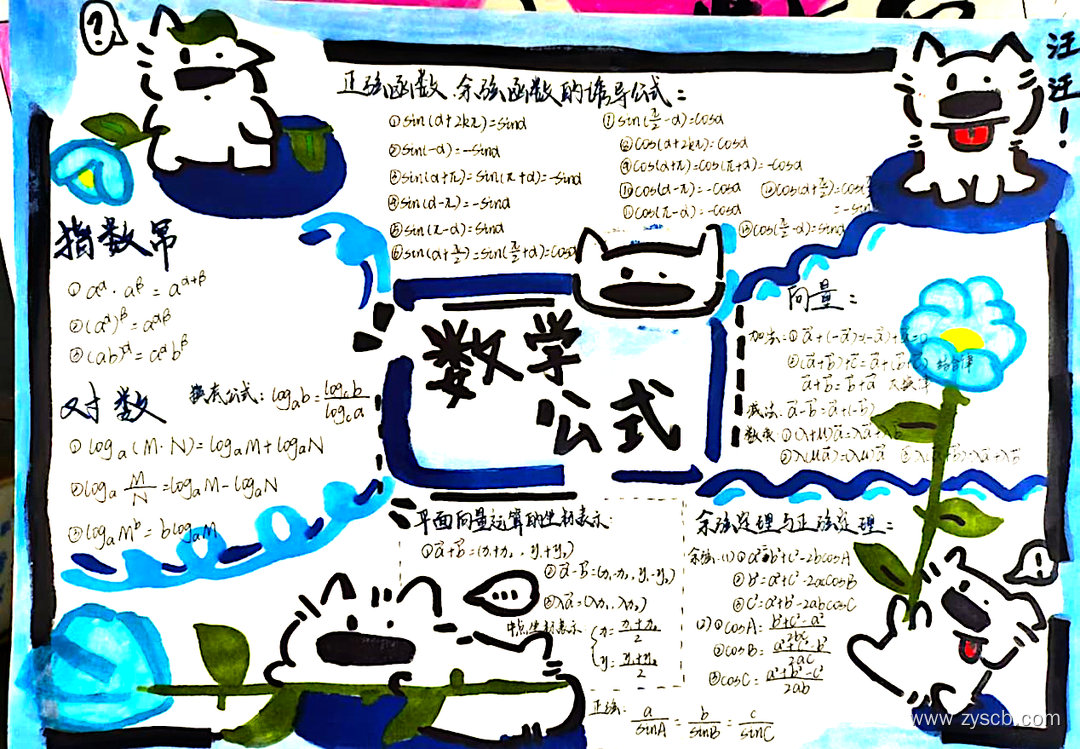 ?
汪
汪
!
正弦函数、余弦函数的诱导公式:
①sin(α+2kπ)=sinα
②sin(-α)=-sinα
③sin(α+π)=sin(π+α)=-sinα
④sin(α-π)=-sinα
⑤sin(π-α)=sinα
⑥sin(α+π/2)=sin(π/2+α)=cosα
①sin(π/2-α)=cosα
②cos(α+2kπ)=cosα
④cos(α+π)=cos(π+α)=-cosα
⑩cos(α-π)=-cosα
①cos(π-α)=-cosα
cos(α+π/2)=cos(
=-sin
⑬cos(π/2-α)=sinα
指数幂
①aᵅ·aᵝ=aᵅ⁺ᵝ
②(aᵅ)ᵝ=aᵅᵝ
③(ab)ᵅ=aᵅbᵝ
对数
换底公式:logₐb=log꜀b/log꜀a
①logₐ(M·N)=logₐM+logₐN
②logₐM/N=logₐM-logₐN
③logₐMᵇ=blogₐM
数学
公式
向量:
加法:①a⃗+(-a⃗)=(-a⃗)+a⃗=0
②(a⃗+b⃗)+c⃗=a⃗+(b⃗+c⃗) 结合律
a⃗+b⃗=b⃗+a⃗ 交换律
减法:a⃗-b⃗=a⃗+(-b⃗)
数乘:①(λ+μ)a⃗=λa⃗+
②λ(μa⃗)=(λμ)a⃗
平面向量运算的坐标表示:
①a⃗+b⃗=(x₁+x₂,y₁+y₂)
②a⃗-b⃗=(x₁-x₂,y₁-y₂)
③λa⃗=(λx₁,λy₁)
中点坐标表示
x=(x₁+x₂)/2
y=(y₁+y₂)/2
余弦定理与正弦定理:
余弦:(1)①a²=b²+c²-2bcosA
②b²=a²+c²-2accosB
③c²=a²+b²-2abcosC
(2)①cosA=(b²+c²-a²)/2bc
②cosB=(a²+c²-b²)/2ac
③cosC=(a²+b²-c²)/2ab
正弦:a/sinA=b/sinB=c/sinC
...
!
www.zyscb.com